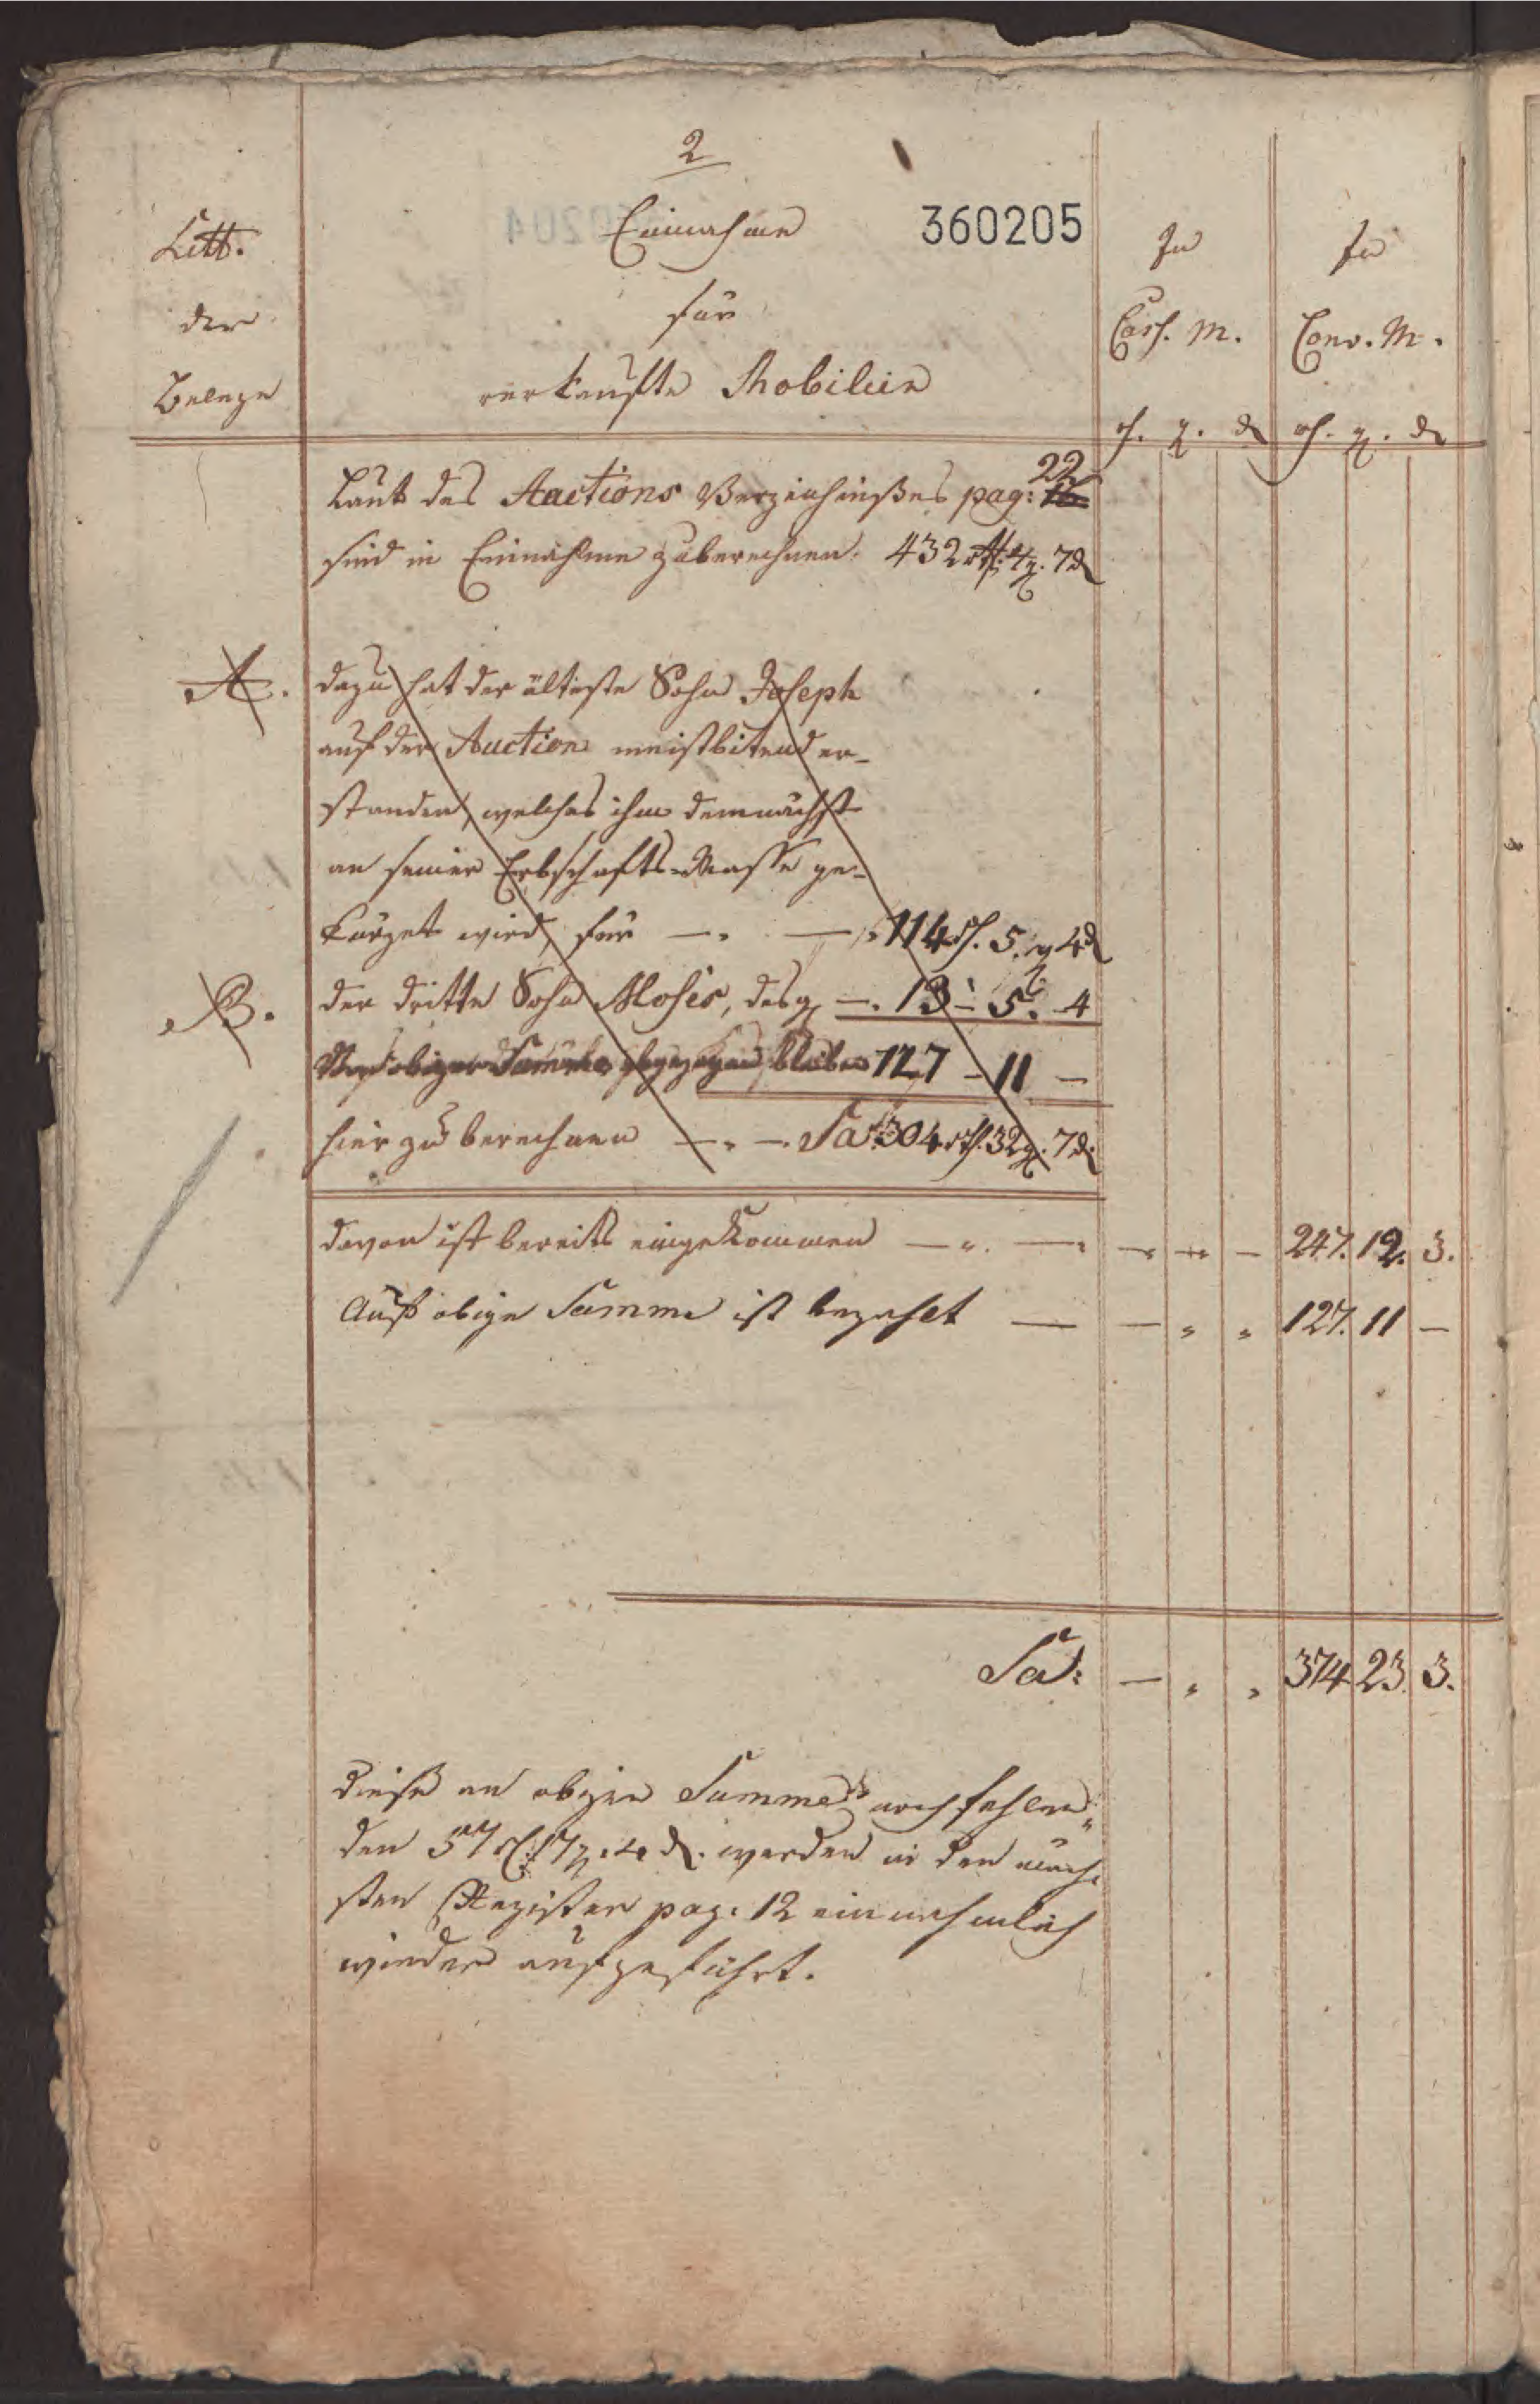 2
Einnahme
360205
für
verkaufte Mobilien
Litt.
der
Belege
In
Cass. M.
In
Conv. M.
rth. g. d
rth. g. d
Laut des Auctions Verzeichnißes pag: 16 22.
sind in Einnahme zuberechnen. 432 rth. 4 g. 7 d
A.
dazu hat der älteste Sohn Joseph
auf der Auction meistbietend er-
standen, welches ihm demnächst
an seiner Erbschafts-Masse ge-
kürzet wird, für —. —. 114 rth. 5. g 4 d
B.
der dritte Sohn Moses, desgl. —. 13 - 5. 4
Von obiger Summe abgezogen bleiben 127 - 11 —
hier zu berechnen —. —. Sa: 304 rth. 32 g. 7 d.
davon ist bereits eingekommen —. —. — — — 247. 12. 3.
Auf obige Summe ist bezahlt — — „ „ 127. 11 —
Sa: — „ „ 374 23. 3.
Diese an obiger Summe noch fehlen„
den 57 rth. 17 g. 4 d. werden in den näch„
sten Register pag. 12 einnehmlich
wieder aufgeführt.